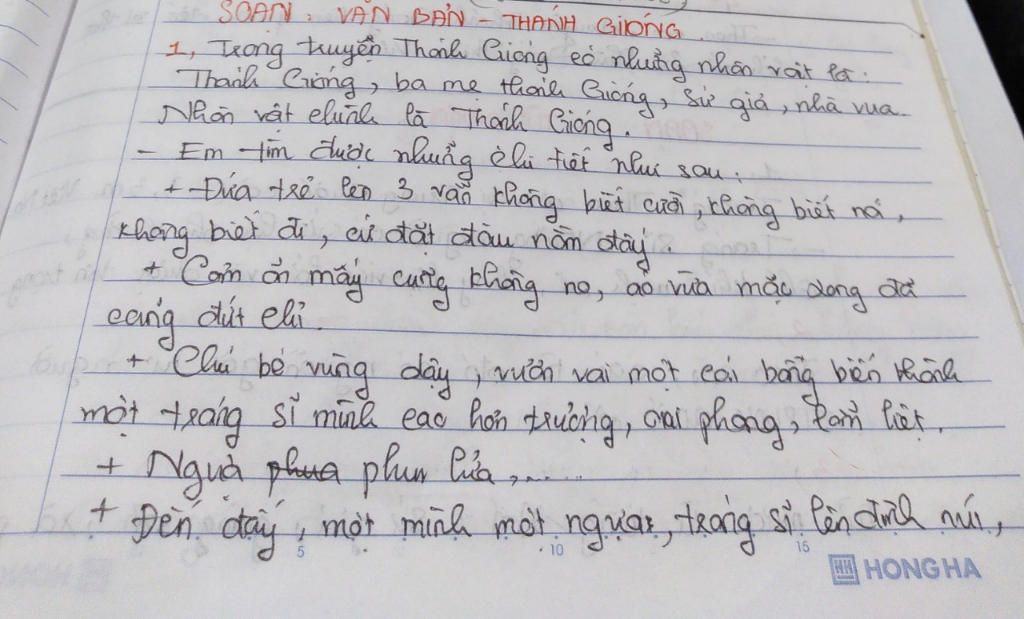 SOẠN: VĂN BẢN - THÁNH GIÓNG.
1, Trong truyện Thánh Gióng có những nhân vật là:
Thánh Gióng, ba mẹ thánh Gióng, sứ giả, nhà vua.
Nhân vật chính là Thánh Gióng.
- Em tìm được những chi tiết như sau:
+ Đứa trẻ lên 3 vẫn không biết cười, không biết nói,
không biết đi, cứ đặt đâu nằm đấy.
+ Cơm ăn mấy cũng không no, áo vừa mặc dong đã
căng đứt chỉ.
+ Chú bé vùng dậy, vươn vai một cái bỗng biến thành
một tráng sĩ mình cao hơn trượng, oai phong, lẫm liệt.
+ Ngựa phua phun lửa,.....
+ Đến đấy, một mình một ngựa, tráng sĩ lên đỉnh núi,
5 10 15
HH HONG HA